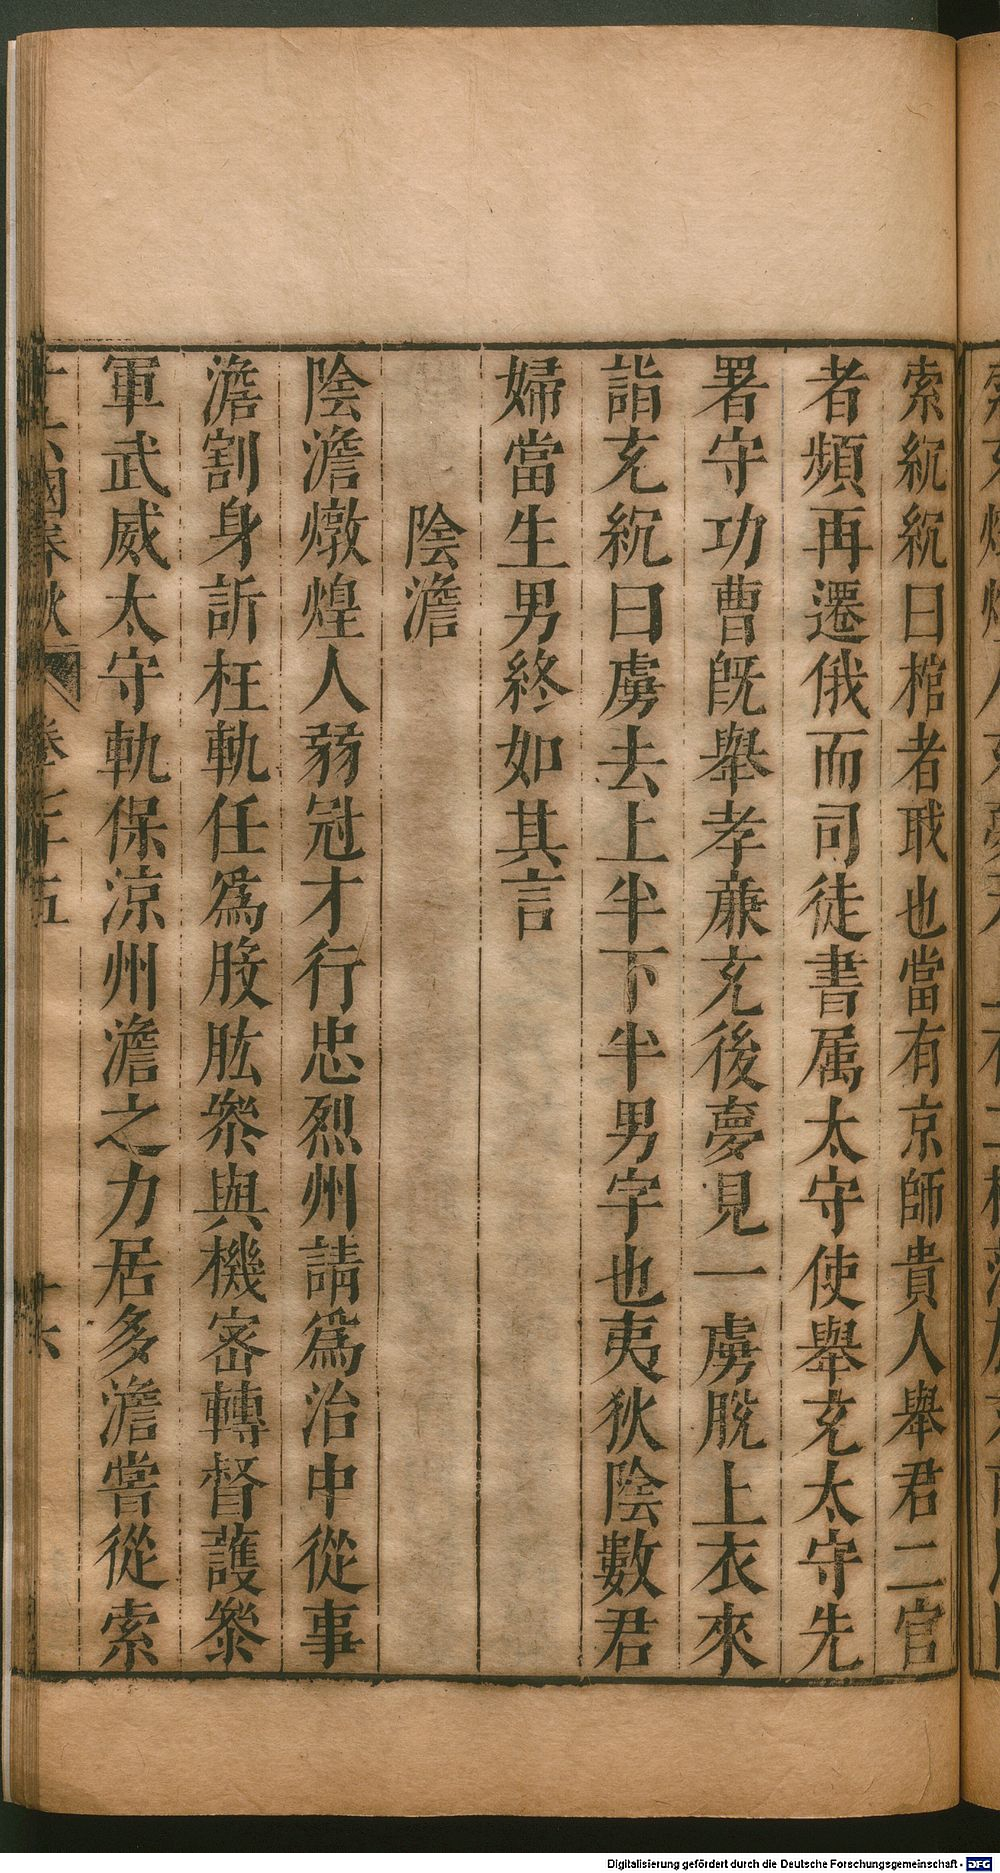 索紞紞曰棺者職也當有京師貴人舉君二官
者頻再遷俄而司徒書属太守使舉充太守先
署守功曹旣舉孝廉充後夢見一虜脫上衣來
詣充紞曰虜去上半下半男字也夷狄陰數君
婦當生男終如其言
陰澹
陰澹燉煌人弱冠才行忠烈州請爲治中從事
澹割身訴枉軌任爲股肱叅與機宻轉督護叅
軍武威太守軌保涼州澹之力居多澹嘗從索
十六國春秋 卷七十五 十六
Digitalisierung gefördert durch die Deutsche Forschungsgemeinschaft - DFG